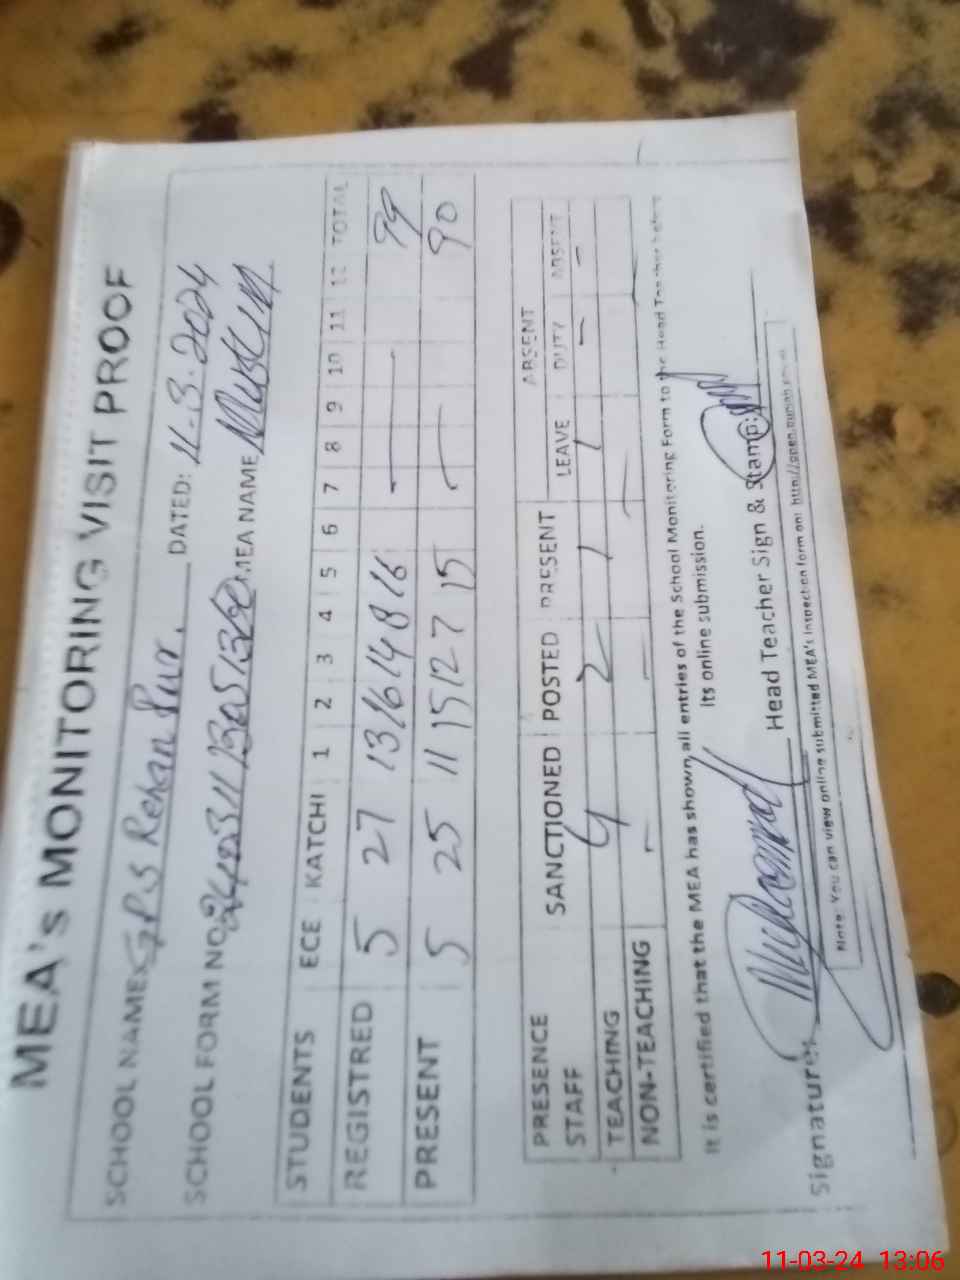 MEA's MONITORING VISIT PROOF
SCHOOL NAME: GPS Rehan Pur. DATED: 11-3-2024
SCHOOL FORM NO. MEA NAME
STUDENTS ECE KATCHI 1 2 3 4 5 6 7 8 9 10 11 12 TOTAL
REGISTRED 5 27 13 16 14 8 16 — 99
PRESENT 5 25 11 15 12 7 15 — 90
PRESENCE SANCTIONED POSTED PRESENT ABSENT
STAFF LEAVE DUTY ABSENT
TEACHING 4 2 1 1 - -
NON-TEACHING - - -
It is certified that the MEA has shown all entries of the School Monitoring Form to the Head Teacher before
Its online submission.
Signature: Head Teacher Sign & Stamp:
Note: You can view online submitted MEA's Inspection form on: http://open.punjab.gov.pk
11-03-24 13:06